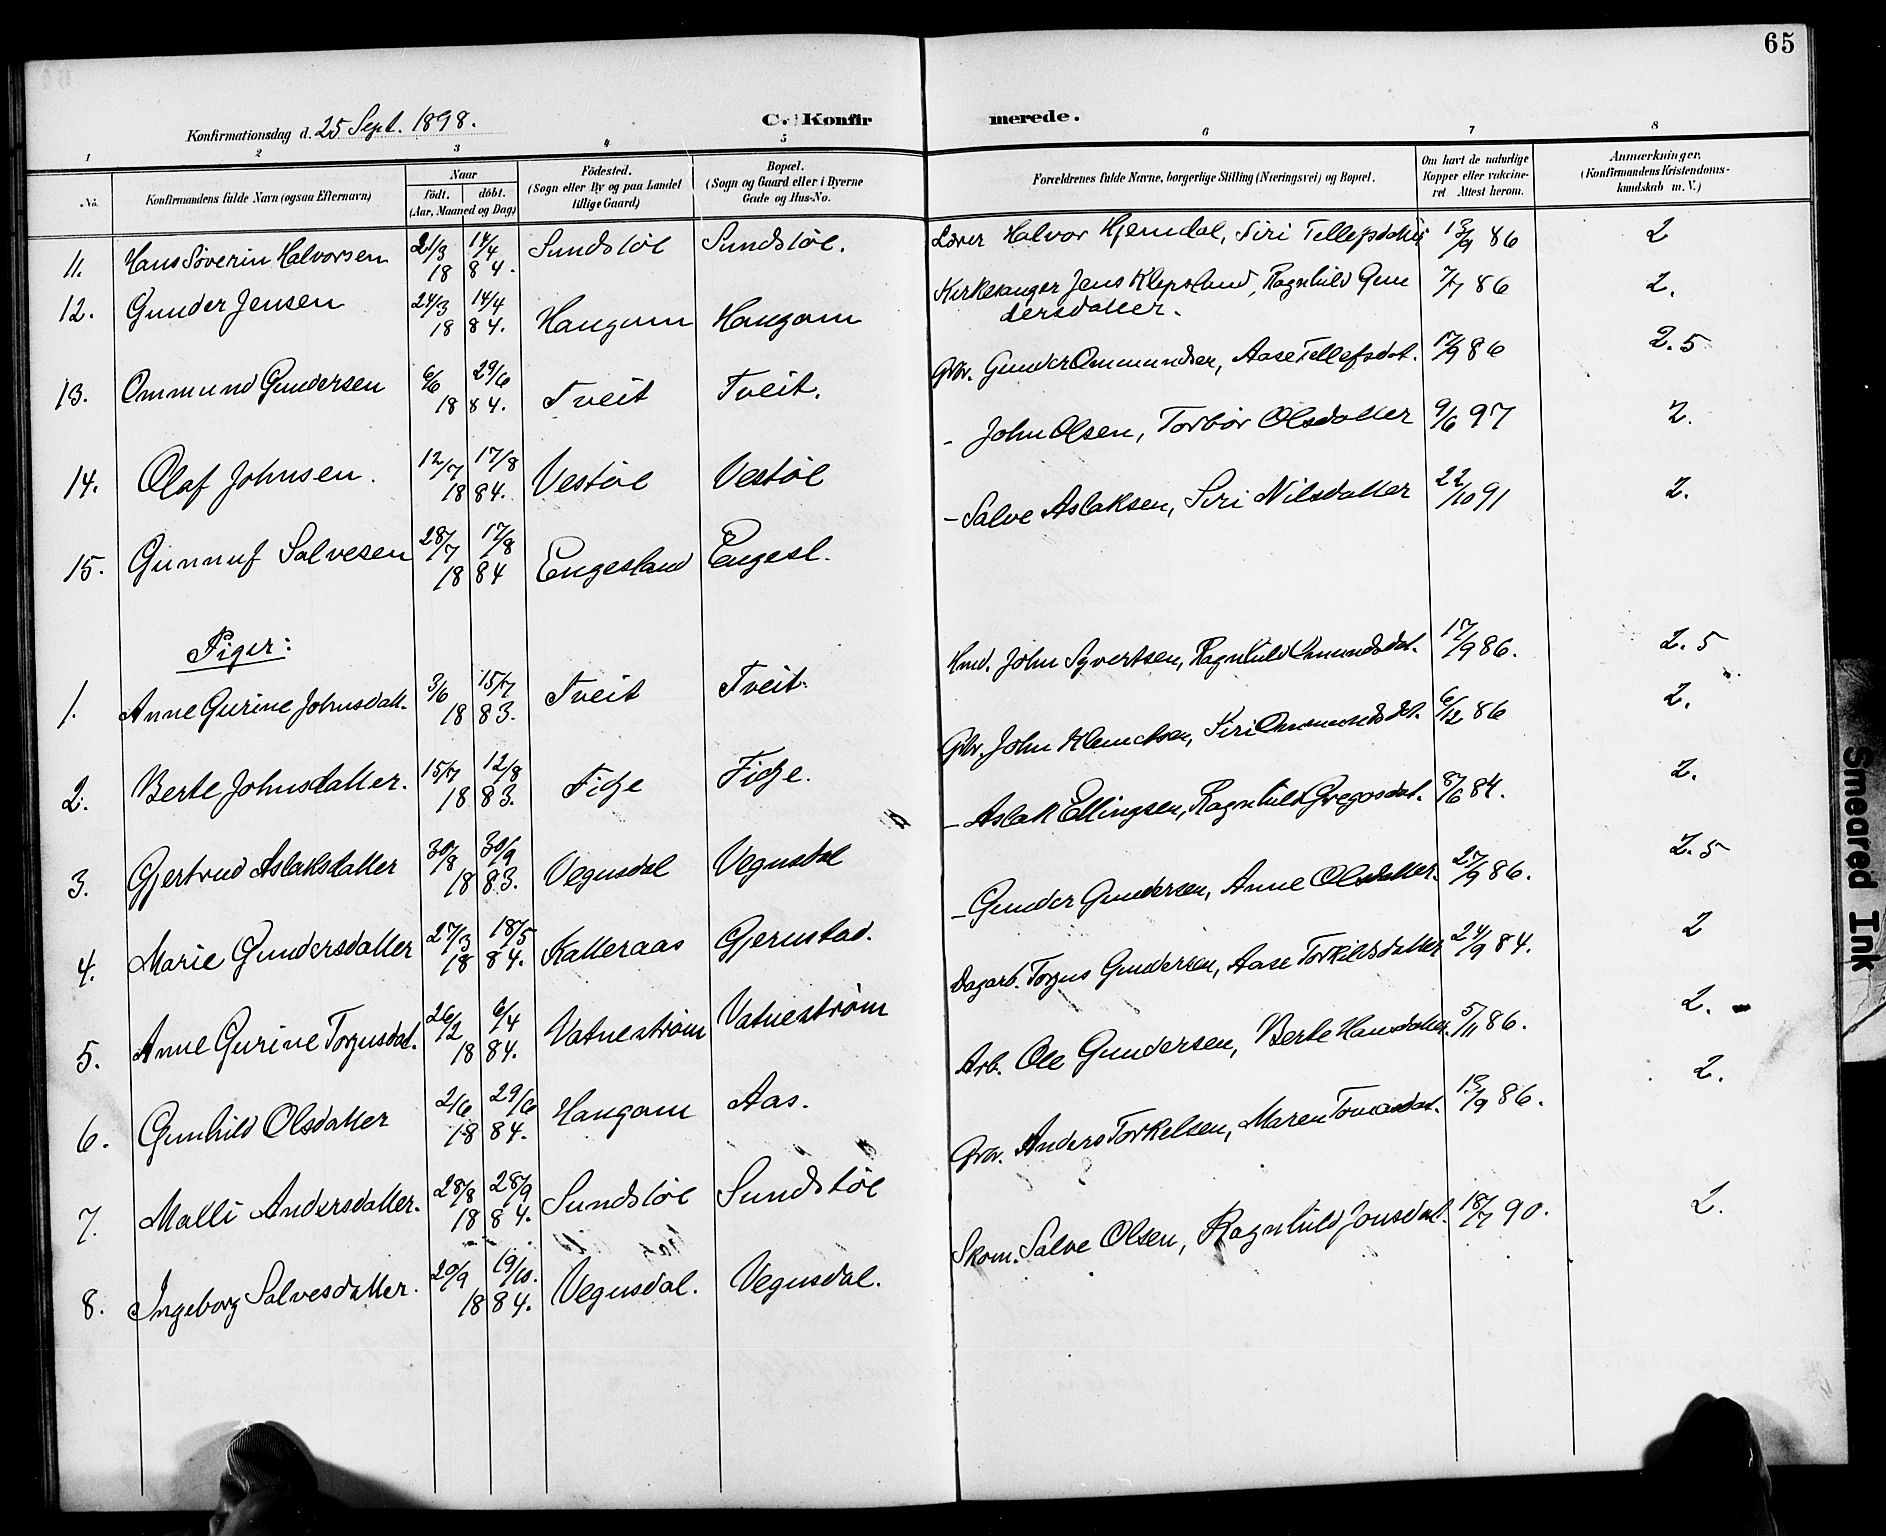 65
Konfirmationsdag d. 25 Sept. 1898.
C. Konfirmerede.
1 2 3 4 5 6 7 8
No. Konfirmandens fulde Navn (ogsaa Efternavn) Naar født. døbt. (Aar, Maaned og Dag) Fødested. (Sogn eller By og paa Landet tillige Gaard) Bopæl. (Sogn og Gaard eller i Byerne Gade og Hus-No. Forældrenes fulde Navne, borgerlige Stilling (Næringsvei) og Bopæl. Om havt de naturlige Kopper eller vaccineret Attest herom. Anmærkninger. (Konfirmandens Kristendomskundskab m. V.)
11. Hans Søverin Halvorsen 21/3 14/4 1884. Sundstøl Sundstøl. Lærer Halvor Hjemdal, Siri Tellefsdatter 13/9 86 2
12. Gunder Jensen 24/3 14/4 1884. Haugom Haugom Kirkesanger Jens Klepsland, Ragnhild Gun
dersdatter. 7/7 86 2.
13. Ommund Gundersen 6/6 29/6 1884. Tveit Tveit. Gbr. Gunder Ommundsen, Aase Tellefsdat. 17/9 86 2.5
14. Olaf Johnsen. 12/7 17/8 1884. Vestøl Vestøl - John Olsen, Torbør Olsdatter 9/6 97 2.
15. Gunnuf Salvesen 28/7 17/8 1884 Engesland Engesl. - Salve Aslaksen, Siri Nilsdatter 22/10 91 2.
Piger:
1. Anne Gurine Johnsdatt. 3/6 15/7 1883. Tveit Tveit. Hmd. John Syvertsen, Ragnhild Omundsdat. 17/9 86. 2.5
2. Berte Johnsdatter. 15/7 12/8 1883. Fidje Fidje. Gbr. John Klemetsen, Siri Ommundsdat. 6/12 86 2.
3. Gjertrud Aslaksdatter 30/8 30/9 1883. Vegusdal Vegusdal - Aslak Ellingsen, Ragnhild Gregosdat. 8/6 84. 2.
4. Marie Gundersdatter 27/3 18/5 1884. Katteraas Gjerustad. - Gunder Gundersen, Anne Olsdatter. 27/9 86. 2.5
5. Anne Gurine Torjusdat. 26/2 6/4 1884. Vatnestrøm Vatnestrøm Dagarb. Torjus Gundersen, Aase Torkildsdatter 24/9 84. 2
6. Gunhild Olsdatter 2/6 29/6 1884. Haugom Aas. Arb. Ole Gundersen, Berte Hansdatter. 5/11 86. 2.
7. Malli Andersdatter. 28/8 28/9 1884. Sundstøl Sundstøl Gbr. Anders Torkelsen, Maren Tomasdat. 13/9 86. 2.
8. Ingeborg Salvesdatter. 20/9 19/10. 1884. Vegusdal. Vegusdal. Skom. Salve Olsen, Ragnhild Jonsdat. 18/7 90. 2.
Smeared Ink